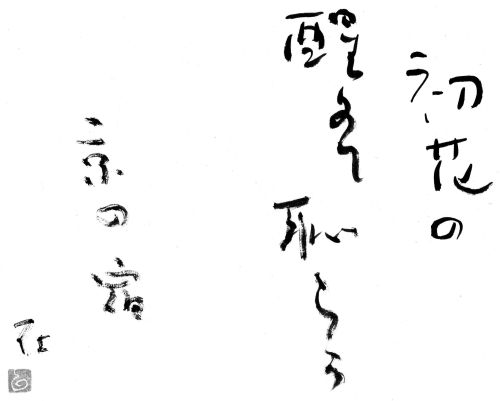 初花の
醒めて恥らう
京の宿